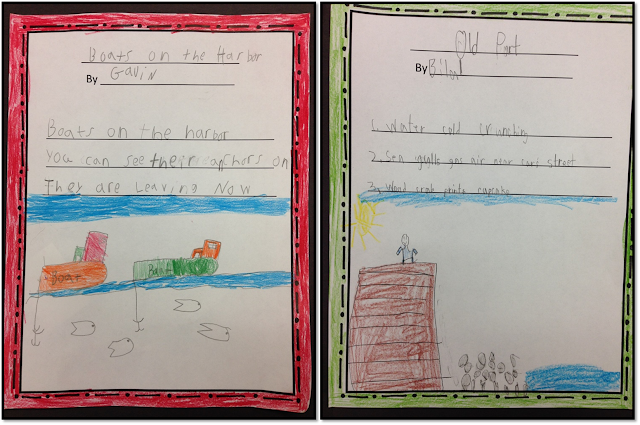 Boats on the Harbor
By Gavin
Boats on the harbor
You can see their anchors on
They are Leaving Now
Boat
Boat
Old Port
By Bilal
1. Winter cold crunching
2. Sea gulls gas air near street
3. Wood crab prints cupcake